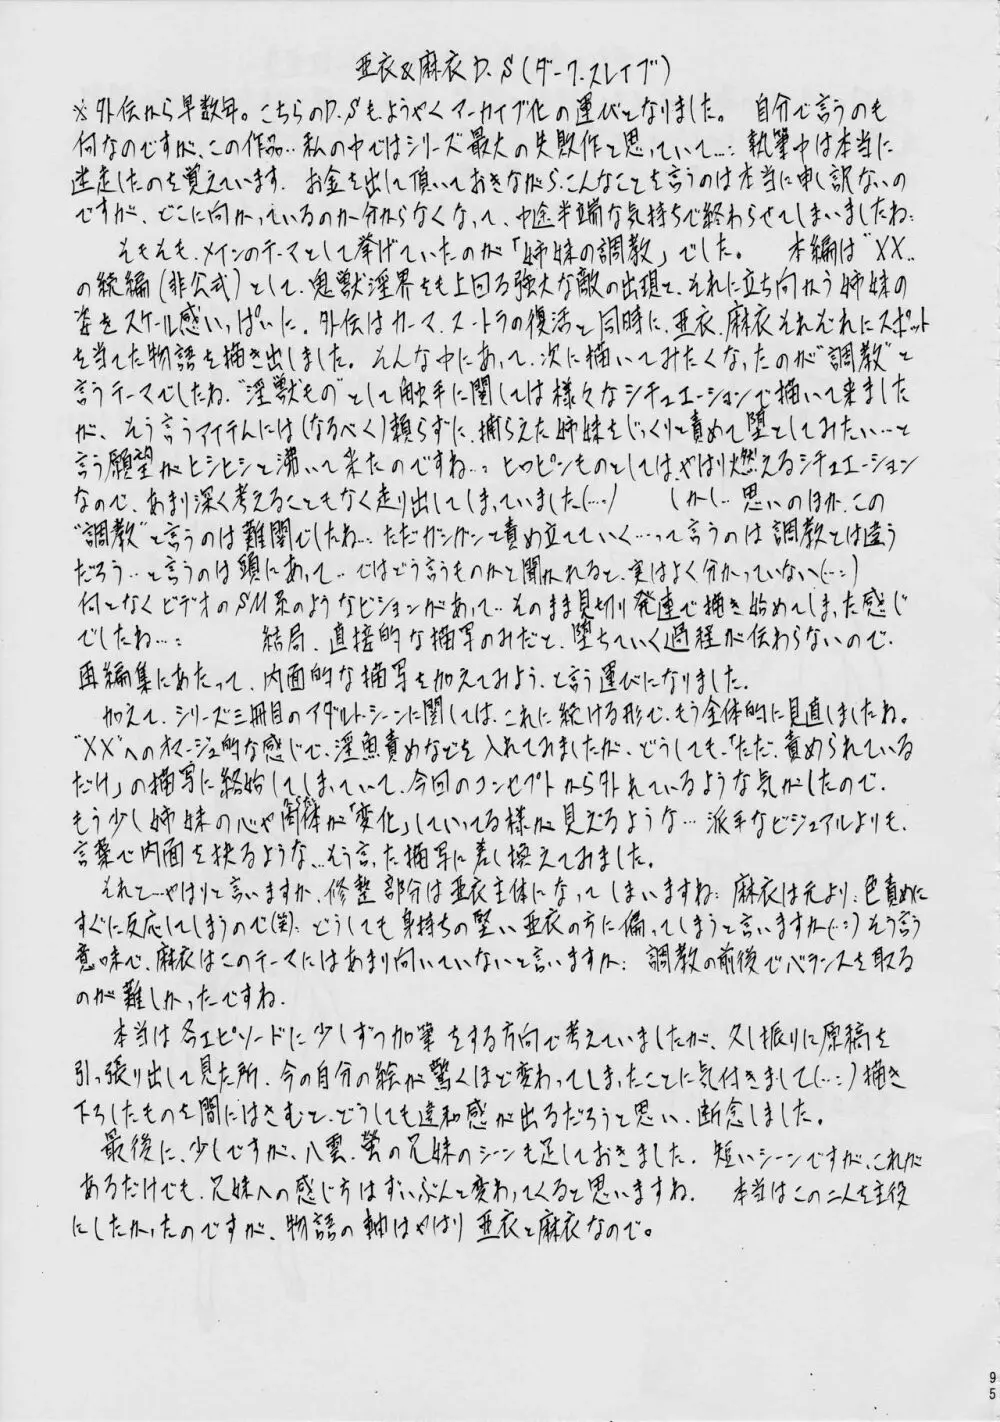 亜衣&麻衣 D.S(ダーク.スレイブ)
※外伝から早数年。こちらのD.Sも、ようやくアーカイブ化の運びとなりました。 自分で言うのも
何なのですが、この作品‥私の中ではシリーズ最大の失敗作と思っていて…:執筆中は本当に
迷走したのを覚えています. お金を出して頂いておきながら、こんなことを言うのは本当に申し訳ないの
ですが、どこに向かっているのか分からなくなって、中途半端な気持ちで終わらせてしまいましたね:
そもそも、メインのテーマとして挙げていたのが「姉妹の調教」でした。 本編は"XX‥
の続編(非公式)として、鬼獣淫界をも上回る強大な敵の出現と、それに立ち向かう姉妹の
姿をスケール感いっぱいに、外伝はカーマ.スートラの復活と同時に、亜衣.麻衣それぞれにスポット
を当てた物語を描き出しました。そんな中にあって、次に描いてみたくなったのが"調教"と
言うテーマでしたね.“淫獣もの”として触手に関しては様々なシチュエーションで描いて来ました
が、そう言うアイテムには(なるべく)頼らずに、捕らえた姉妹をじっくりと責めて堕としてみたい…と
言う願望がヒシヒシと沸いて来たのですね‥:ヒロピンものとしては、やはり燃えるシチュエーション
なので、あまり深く考えることもなく走り出してしまっていました(…) しかし‥思いのほか、この
“調教”と言うのは難関でしたね…ただガンガンと責め立てていく…って言うのは調教とは違う
だろう‥と言うのは頭にあって‥ではどう言うものかと聞かれると、実はよく分かっていない(…:)
何となくビデオのSM系のようなビジョンがあって‥そのまま見切り発連で描き始めてしまった感じ
でしたね…: 結局、直接的な描写のみだと、堕ちていく過程が伝わらないので、
再編集にあたって、内面的な描写を加えてみよう、と言う運びになりました.
加えて、シリーズ三冊目のアダルト・シーンに関しては、これに続ける形で、もう全体的に見直しましたね。
“XX”へのオマージュ的な感じで、淫魚責めなどを入れてみましたが、どうしても、「ただ、責められている
だけ」の描写に終始してしまっていて、今回のコンセプトから外れているような気がしたので、
もう少し姉妹の心や肉体が「変化」していってる様が見えるような…派手なビジュアルよりも、
言葉で内面を抉るような…そう言った描写に差し換えてみました。
それと…やはりと言いますか、修整部分は亜衣主体になってしまいますね:麻衣は元より:色責めに
すぐに反応してしまうので(笑):どうしても身持ちの堅い亜衣の方に偏ってしまうと言いますか(…:)そう言う
意味で、麻衣はこのテーマにはあまり向いていないと言いますか: 調教の前後でバランスを取る
のが難しかったですね.
本当は各エピソードに少しずつ加筆をする方向で考えていましたが、久し振りに原稿を
引っ張り出して見た所、今の自分の絵が驚くほど変わってしまったことに気付きまして(…:)描き
下ろしたものを間にはさむと、どうしても違和感が出るだろうと思い、断念しました。
最後に、少しですが、八雲.螢の兄妹のシーンも足しておきました. 短いシーンですが、これが
あるだけでも、兄妹への感じ方はずいぶんと変わってくると思いますね. 本当はこの二人を主役
にしたかったのですが、物語の軸はやはり亜衣と麻衣なので。
95